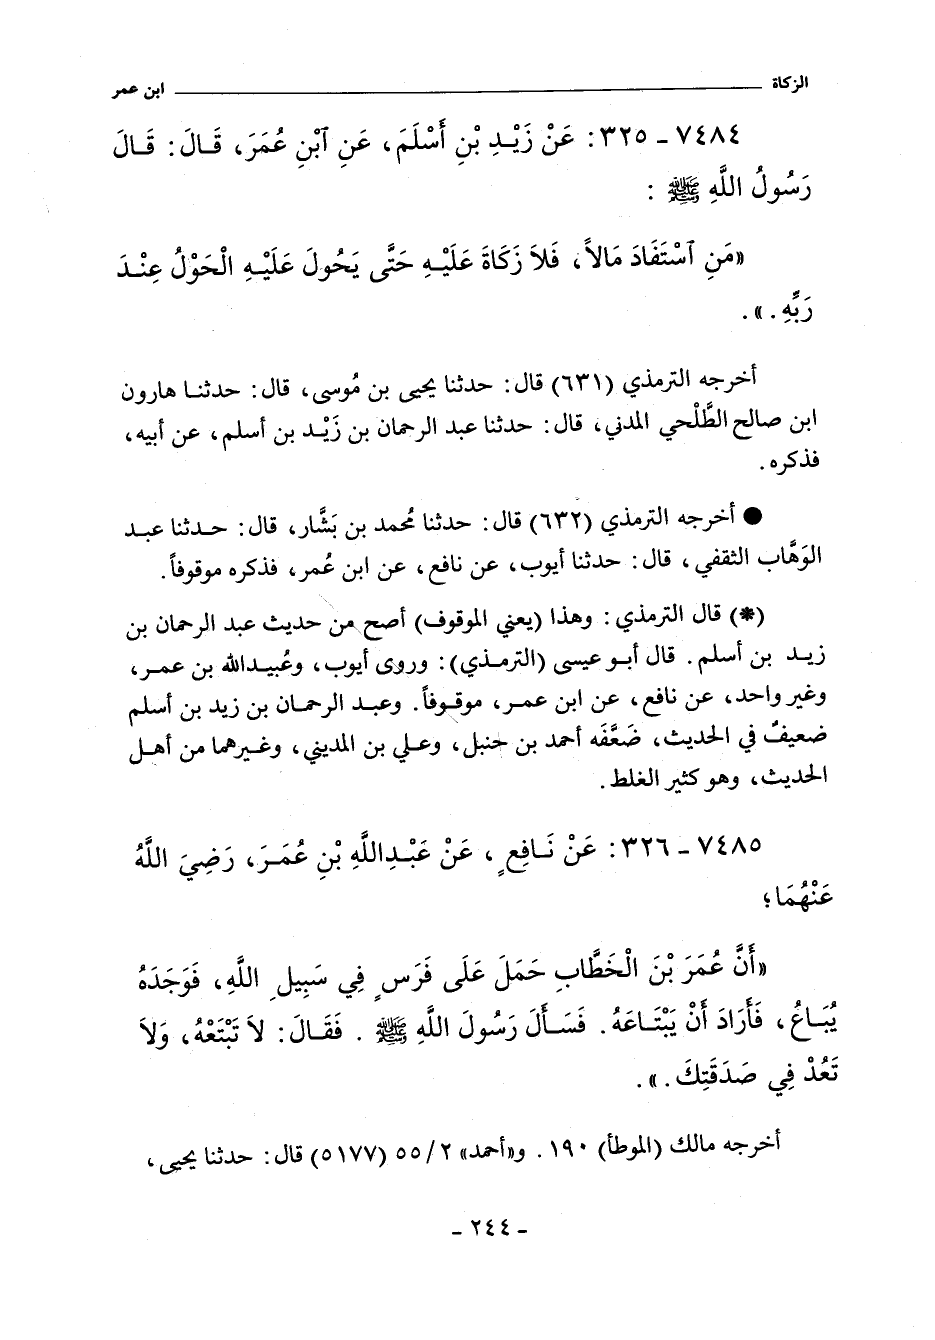 الزكاة ـــــــــ ابن عمر
٧٤٨٤ - ٣٢٥: عَنْ زَيْدِ بْنِ أَسْلَمَ، عَنِ ٱبْنِ عُمَرَ، قَالَ: قَالَ
رَسُولُ اللَّهِ ﷺ :
«مَنِ ٱسْتَفَادَ مَالاً، فَلاَ زَكَاةَ عَلَيْهِ حَتَّى يَحُولَ عَلَيْهِ الْحَوْلُ عِنْدَ
رَبِّهِ.».
أخرجه الترمذي (٦٣١) قال: حدثنا يحيى بن مُوسى، قال: حدثنا هارون
ابن صالح الطَّلْحي المدني، قال: حدثنا عبد الرحمان بن زَيْد بن أسلم، عن أبيه،
فذكره.
● أخرجه الترمذي (٦٣٢) قال: حدثنا مُحمد بن بَشَّار، قال: حدثنا عبد
الوَهَّاب الثقفي، قال: حدثنا أيوب، عن نافع، عن ابن عُمر، فذكره موقوفاً.
(*) قال الترمذي: وهذا (يعني الموقوف) أصح من حديث عبد الرحمان بن
زيد بن أسلم. قال أبو عيسى (الترمذي): وروى أيوب، وعُبيدالله بن عمر،
وغير واحد، عن نافع، عن ابن عمر، موقوفاً. وعبد الرحمان بن زيد بن أسلم
ضعيفٌ في الحديث، ضَعَّفَه أحمد بن حنبل، وعلي بن المديني، وغيرهما من أهل
الحديث، وهو كثير الغلط.
٧٤٨٥ - ٣٢٦: عَنْ نَافِعٍ، عَنْ عَبْدِاللَّهِ بْنِ عُمَرَ، رَضِيَ اللَّهُ
عَنْهُمَا؛
«أَنَّ عُمَرَ بْنَ الْخَطَّابِ حَمَلَ عَلَى فَرَسٍ فِي سَبِيلِ اللَّهِ، فَوَجَدَهُ
يُبَاعُ، فَأَرَادَ أَنْ يَبْتَاعَهُ. فَسَأَلَ رَسُولَ اللَّهِ ﷺ. فَقَالَ: لاَ تَبْتَعْهُ، وَلاَ
تَعُدْ فِي صَدَقَتِكَ.».
أخرجه مالك (الموطأ) ١٩٠. و«أحمد» ٢/ ٥٥ (٥١٧٧) قال: حدثنا يحيى،
- ٢٤٤ -